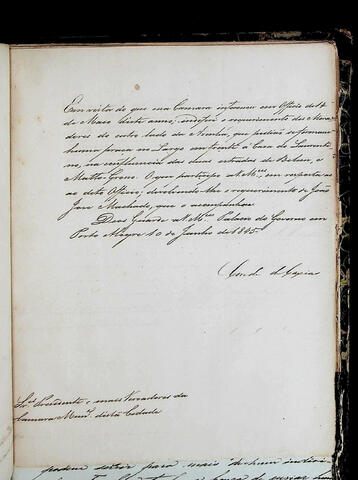 Em vista do que essa Camara informa em Officio de 14
de Maio deste anno, indeferi o requerimento dos Mora
dores do outro lado da Azenha, que pedirão se formas
huma praça no Largo em frente á Casa de Laurenti
no, na confluencia das duas estradas de Belem, e
Matto-Groço. O que participo a V.Mces em resposta
ao dito Officio, devolvendo-lhe o requerimento de João
José Machado, que o acompanhou.
Deos Guarde a V.Mces Palacio do Governo em
Porto Alegre 10 de Junho de 1845.
Conde de Caxias
Sres Presidente e mais Vereadores da
Camara Munal desta Cidade